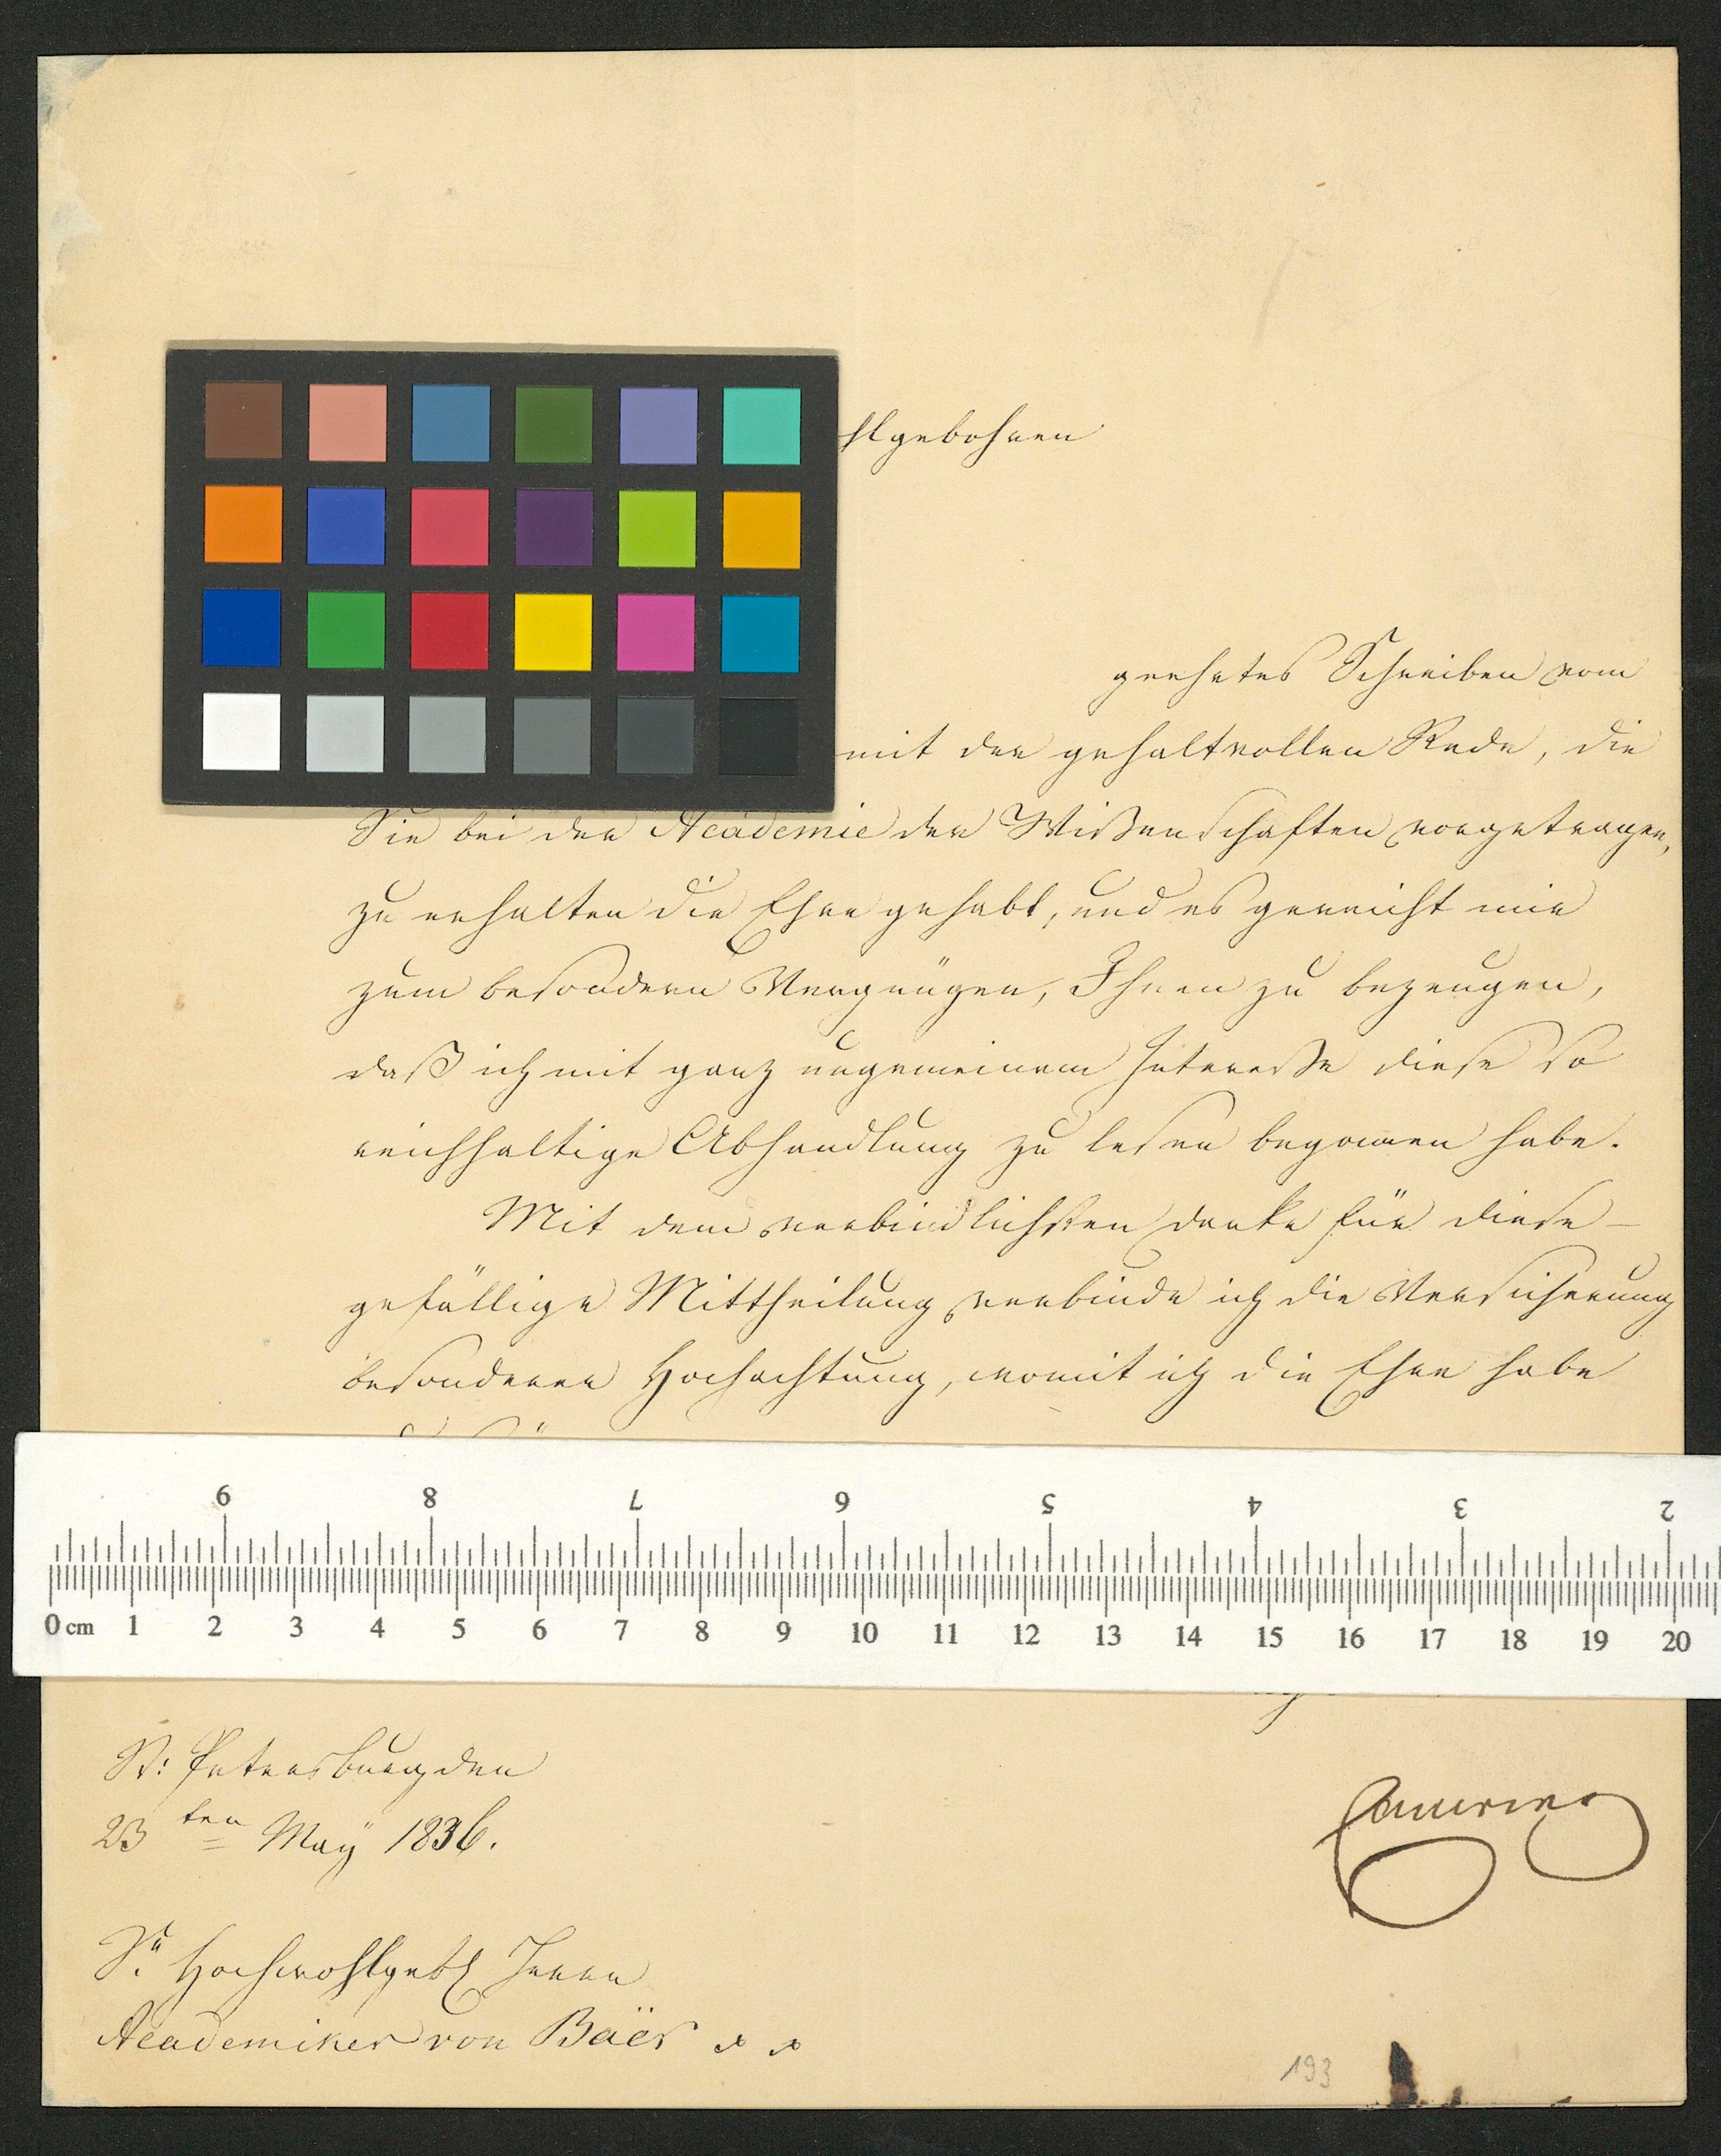 hlgebohren
geehrtes Schreiben vom
mit der gehaltvollen Rede, die
Sie bei der Academie der Wißenschaften vorgetragen,
zu erhalten die Ehre gehabt, und es gereicht mir
zum besondern Vergnügen, Ihnen zu bezeugen,
daß ich mit ganz ungemeinem Intereße diese so
reichhaltige Abhandlung zu lesen begonnen habe.
Mit dem verbindlichsten Danke für diese
gefällige Mittheilung verbinde ich die Versicherung
besonderer Hochachtung, womit ich die Ehre habe
9 8 7 6 5 4 3 2
0 cm 1 2 3 4 5 6 7 8 9 10 11 12 13 14 15 16 17 18 19 20
St: Petersburg den
23ten May 1836.
Cancrin
Sr. Hochwohlgeb Herrn
Academiker von Baër
193